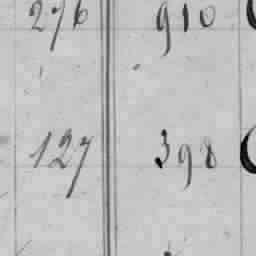 276 910
127 398